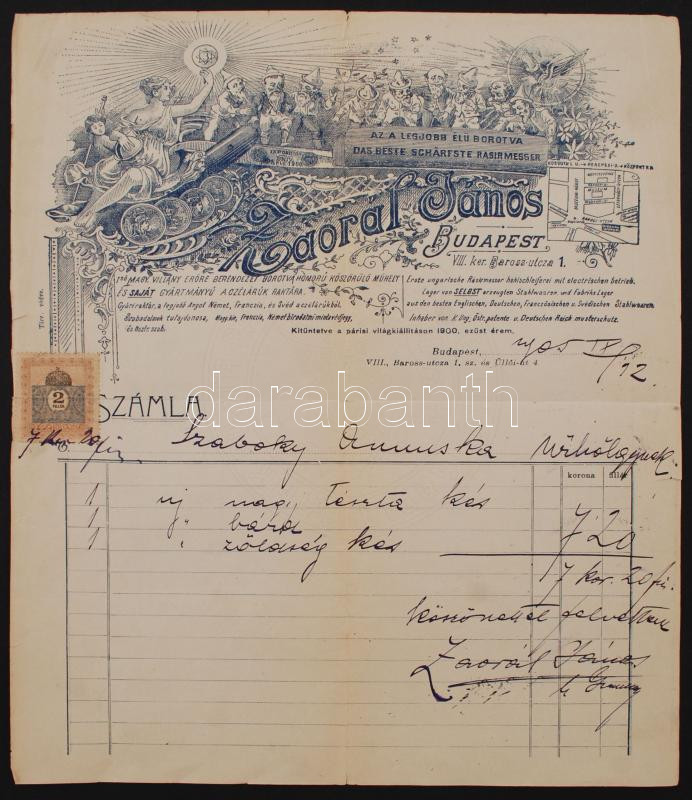 AZ A LEGJOBB ÉLŰ BOROTVA
DAS BESTE SCHÄRFSTE RASIRMESSER
KOSSUTH L. U. → KEREPESI-U. → KÖZPONTI P.U.
Zaorál János
BUDAPEST.
VIII. ker. Baross-utcza 1.
MAGY. VILLANY ERŐRE BERENDEZET BOROTVA HOMORÚ KÖSZÖRÜLŐ MŰHELY
ÉS SAJÁT GYÁRTMÁNYÚ ACZÉLÁRÚK RAKTÁRA.
Gyári raktár, a legjobb Angol, Német, Franczia, és Svéd aczélárúkból.
Szabadalmak tulajdonosa, Magy. kir, Franczia, Német birodalmi mintavédjegy,
Erste ungarische Rasirmesser hohlschleiferei mit electrischen betrieb.
Lager von SELBST erzeugten Stahlwaaren und Fabriks Lager
aus den besten Englischen, Deutschen, Französischen u. Svédischen Stahlwaaren
Inhaber von K. Ung. Östr. patente u. Deutschen Reich musterschutz.
Kitüntetve a párisi világkiállitáson 1900, ezüst érem.
Törv. védve.
Budapest, 905 IX/12.
VIII., Baross-utcza 1. sz. és Üllői-út 4
2
SZÁMLA
darabanth
7 kor 20 fil.
Szaboky Annuska Úrhölgynek
korona fillér
1 új nagy Tészta kés
1 " bárd
1 " zöldség kés 7 20
7 kor. 20 fil.
köszönettel felvettem
Zaorál János